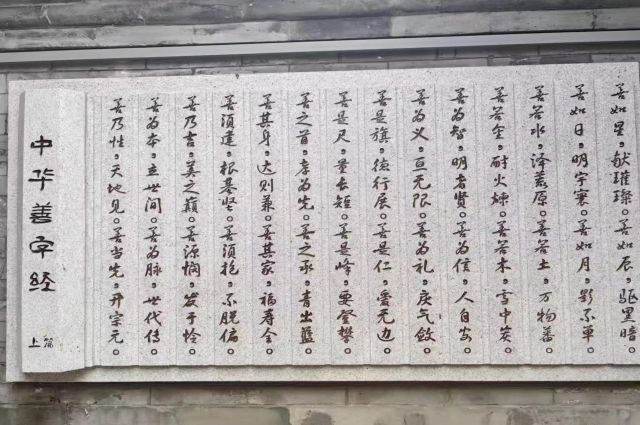 中华善字经
上篇
善乃性，天地见。善当先，开宗元。
善为本，立世间。善为脉，世代传。
善乃吉，美之巅。善源悯，发于怜。
善须建，根基坚。善须，不脱偏。
善其身，达则兼。善其家，福寿全。
善之首，孝为先。善之承，青出蓝。
善是尺，量长短。善是峰，要登攀。
善是旗，德行展。善是仁，爱无边。
善为义，亘无限。善为礼，戾气敛。
善为智，明者贤。善为信，人自安。
善若金，耐火炼。善若木，雪中。
善若水，泽原。善若土，万物蕃。
善如日，明宇寰。善如月，影不单。
善如星，献璀璨。善如辰，驱黑暗。